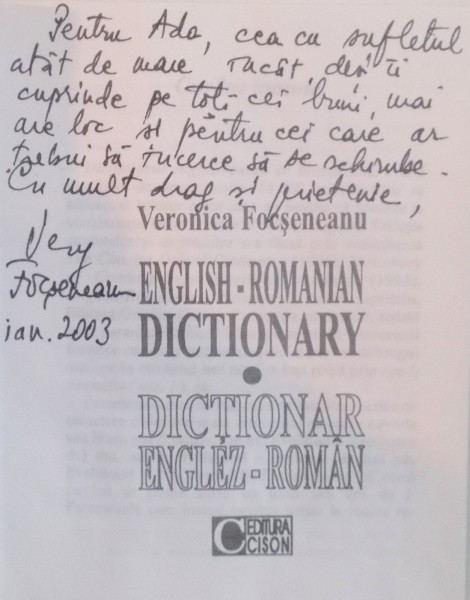 Pentru Ada, cea cu sufletul
atât de mare, încât, deși îi
cuprinde pe toți cei buni, mai
are loc și pentru cei care ar
trebui să încerce să se schimbe.
Cu mult drag și prietenie,
Very
Focșeneanu
ian. 2003
Veronica Focșeneanu
ENGLISH - ROMANIAN
DICTIONARY
DICȚIONAR
ENGLEZ - ROMÂN
EDITURA
CISON